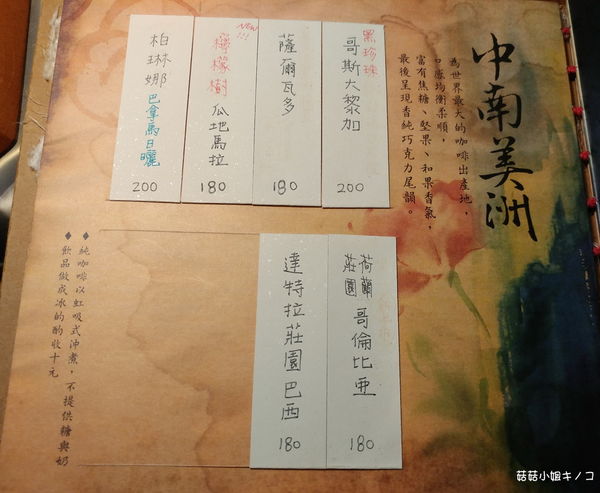 中南美洲
為世界最大的咖啡出產地，
口感均衡柔順，
富有焦糖、堅果、和果香氣，
最後呈現香純巧克力尾韻。
黑珍珠
哥斯大黎加
200
薩爾瓦多
180
NEW!!!
檸檬樹
瓜地馬拉
180
柏林娜
巴拿馬日曬
200
荷蘭
莊園
哥倫比亞
180
達特拉莊園巴西
180
◆純咖啡以虹吸式沖煮，不提供糖與奶
◆飲品做成冰的酌收十元
菇菇小姐キノコ